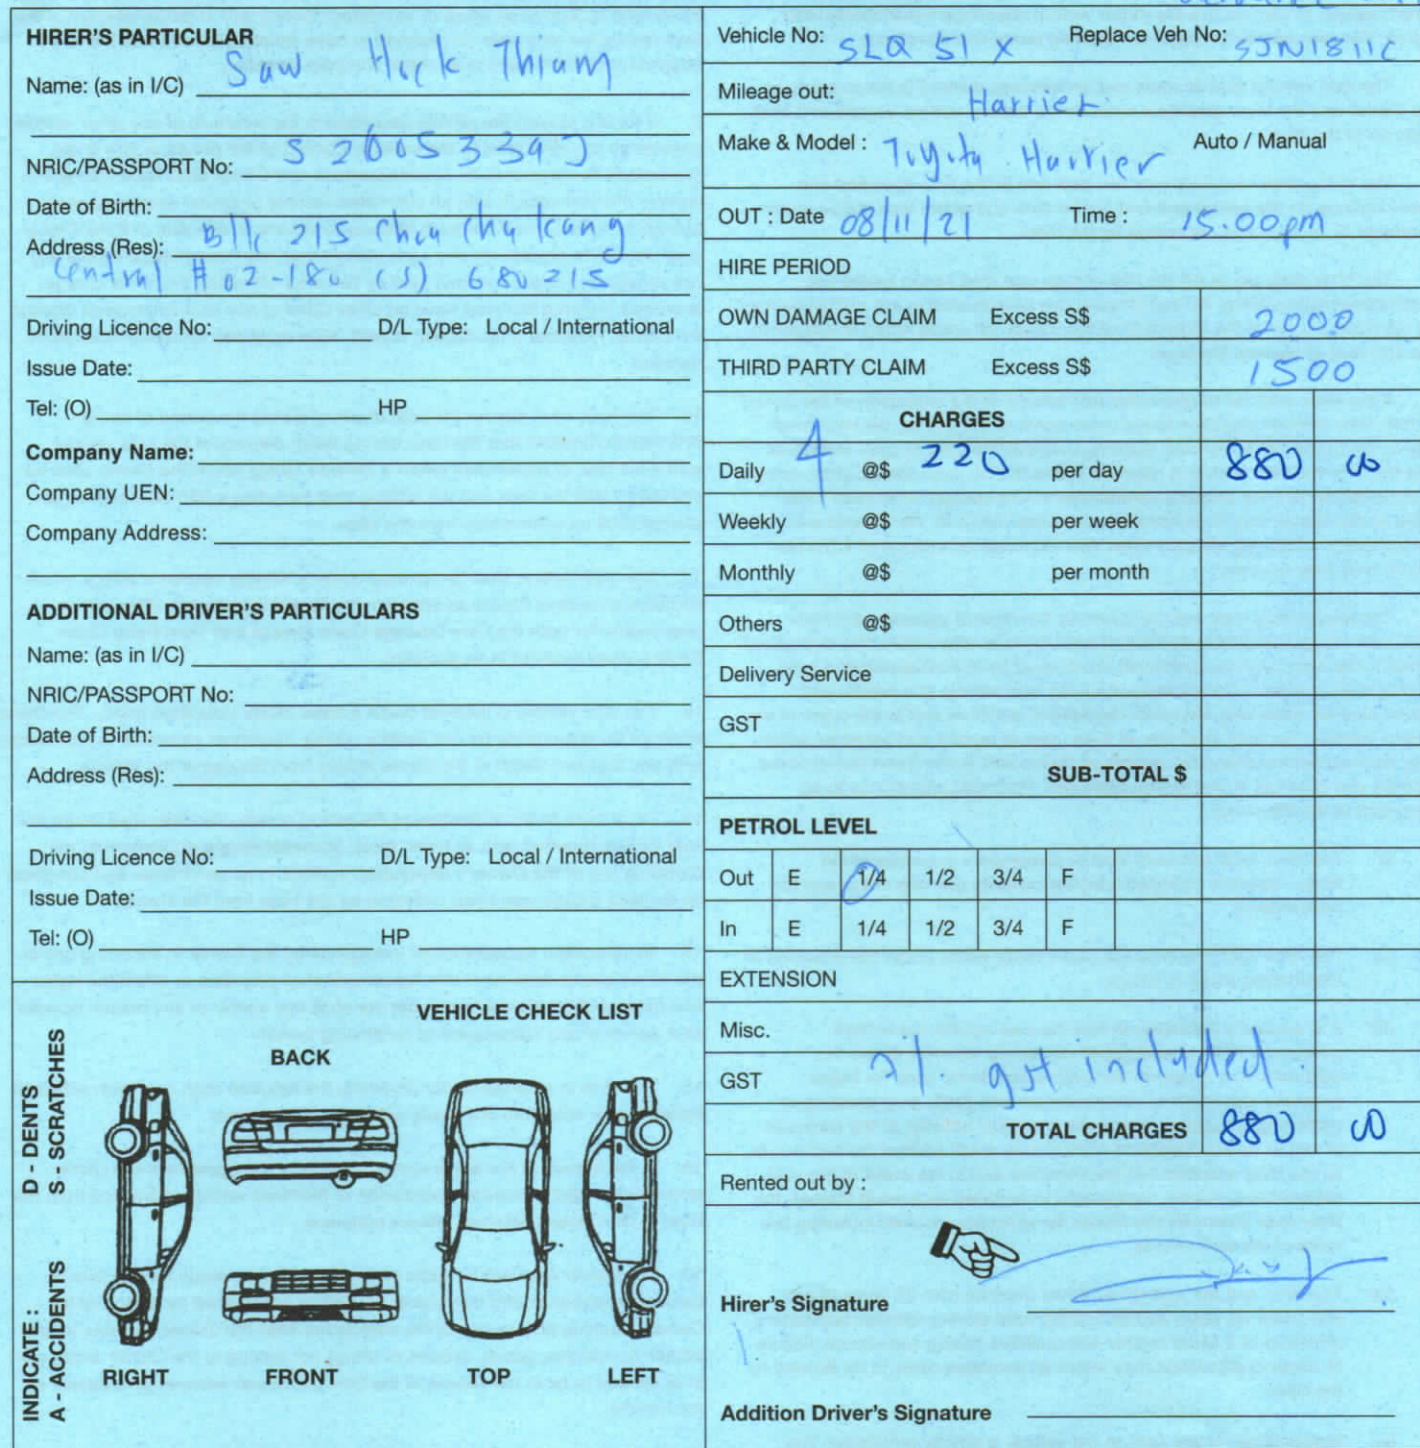 HIRER'S PARTICULAR
Name: (as in I/C) Saw Hock Thiam
NRIC/PASSPORT No: S2005339J
Date of Birth:
Address (Res): Blk 215 Choa Chu Kang
Central #02-180 (S) 680215
Driving Licence No: D/L Type: Local / International
Issue Date:
Tel: (O) HP
Company Name:
Company UEN:
Company Address:
ADDITIONAL DRIVER'S PARTICULARS
Name: (as in I/C)
NRIC/PASSPORT No:
Date of Birth:
Address (Res):
Driving Licence No: D/L Type: Local / International
Issue Date:
Tel: (O) HP
VEHICLE CHECK LIST
INDICATE : D - DENTS
A - ACCIDENTS S - SCRATCHES
BACK
RIGHT FRONT TOP LEFT
Vehicle No: SLQ 51 X Replace Veh No: SJN1811C
Mileage out: Harrier
Make & Model : Toyota Harrier Auto / Manual
OUT : Date 08/11/21 Time : 15.00pm
HIRE PERIOD
OWN DAMAGE CLAIM Excess S$ 2000
THIRD PARTY CLAIM Excess S$ 1500
CHARGES
Daily 4 @$ 220 per day 880 00
Weekly @$ per week
Monthly @$ per month
Others @$
Delivery Service
GST
SUB-TOTAL $
PETROL LEVEL
Out E 1/4 1/2 3/4 F
In E 1/4 1/2 3/4 F
EXTENSION
Misc.
GST 7%. gst included.
TOTAL CHARGES 880 00
Rented out by :
Hirer's Signature
Addition Driver's Signature